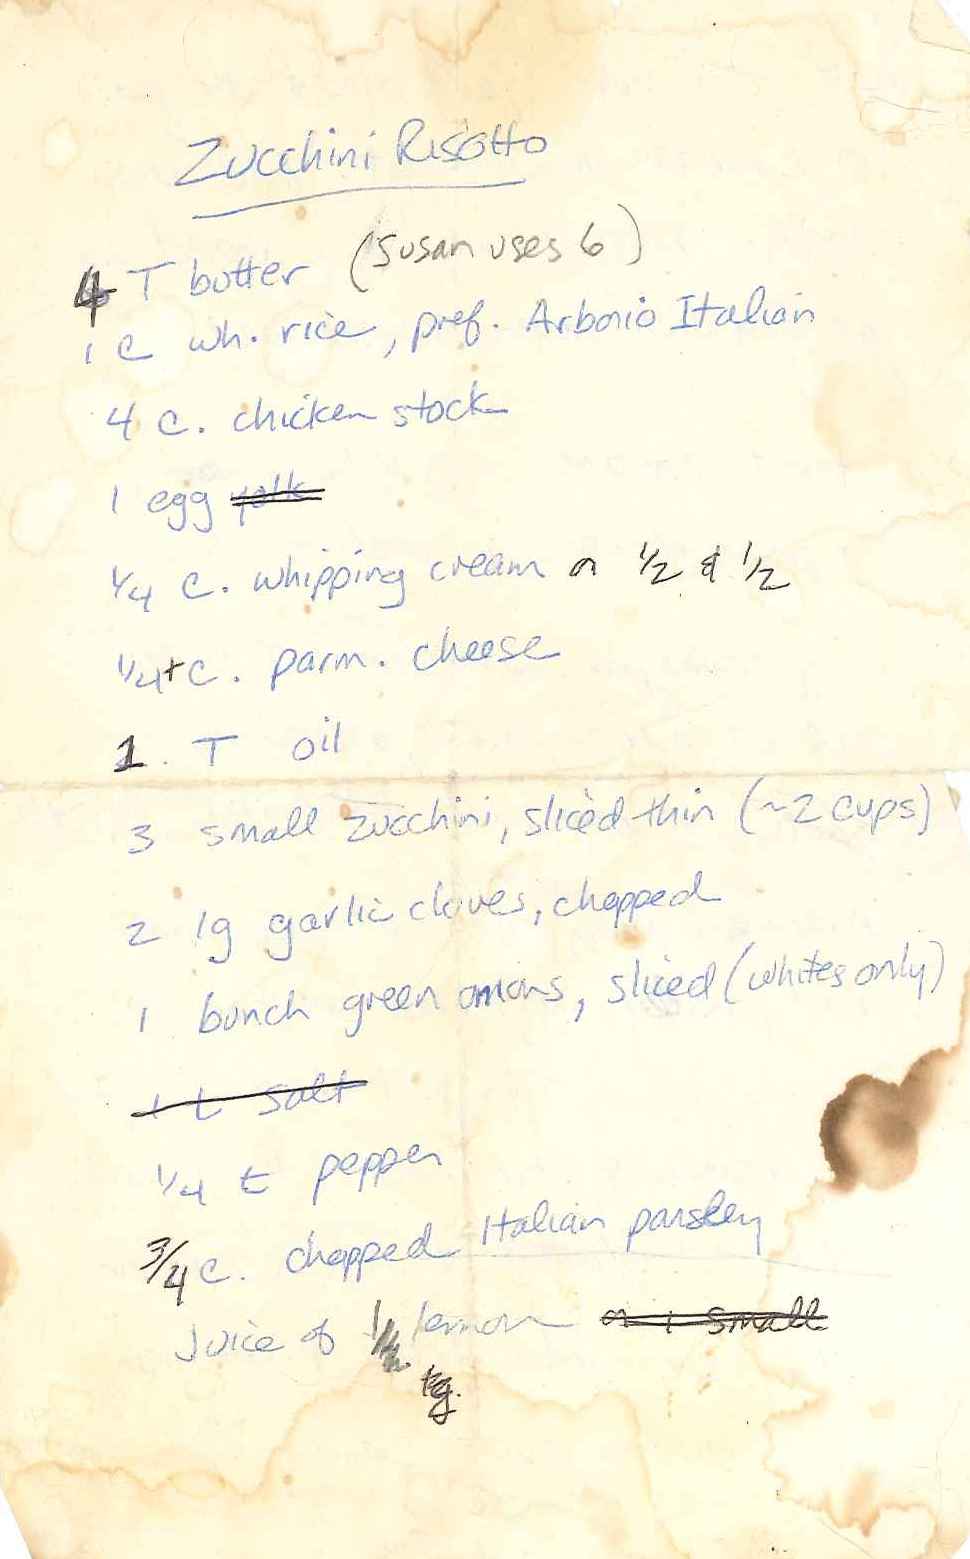 Zucchini Risotto
4 T butter (Susan uses 6)
1 C wh. rice, pref. Arborio Italian
4 C. chicken stock
1 egg yolk
1/4 C. whipping cream or 1/2 & 1/2
1/4+ C. parm. cheese
1 T oil
3 small zucchini, sliced thin (~2 cups)
2 lg garlic cloves, chopped
1 bunch green onions, sliced (whites only)
1 t salt
1/4 t pepper
3/4 C. chopped Italian parsley
Juice of lemon or 1 small